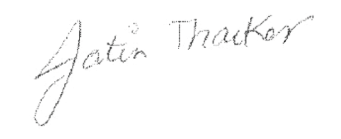 Jatin Thacker